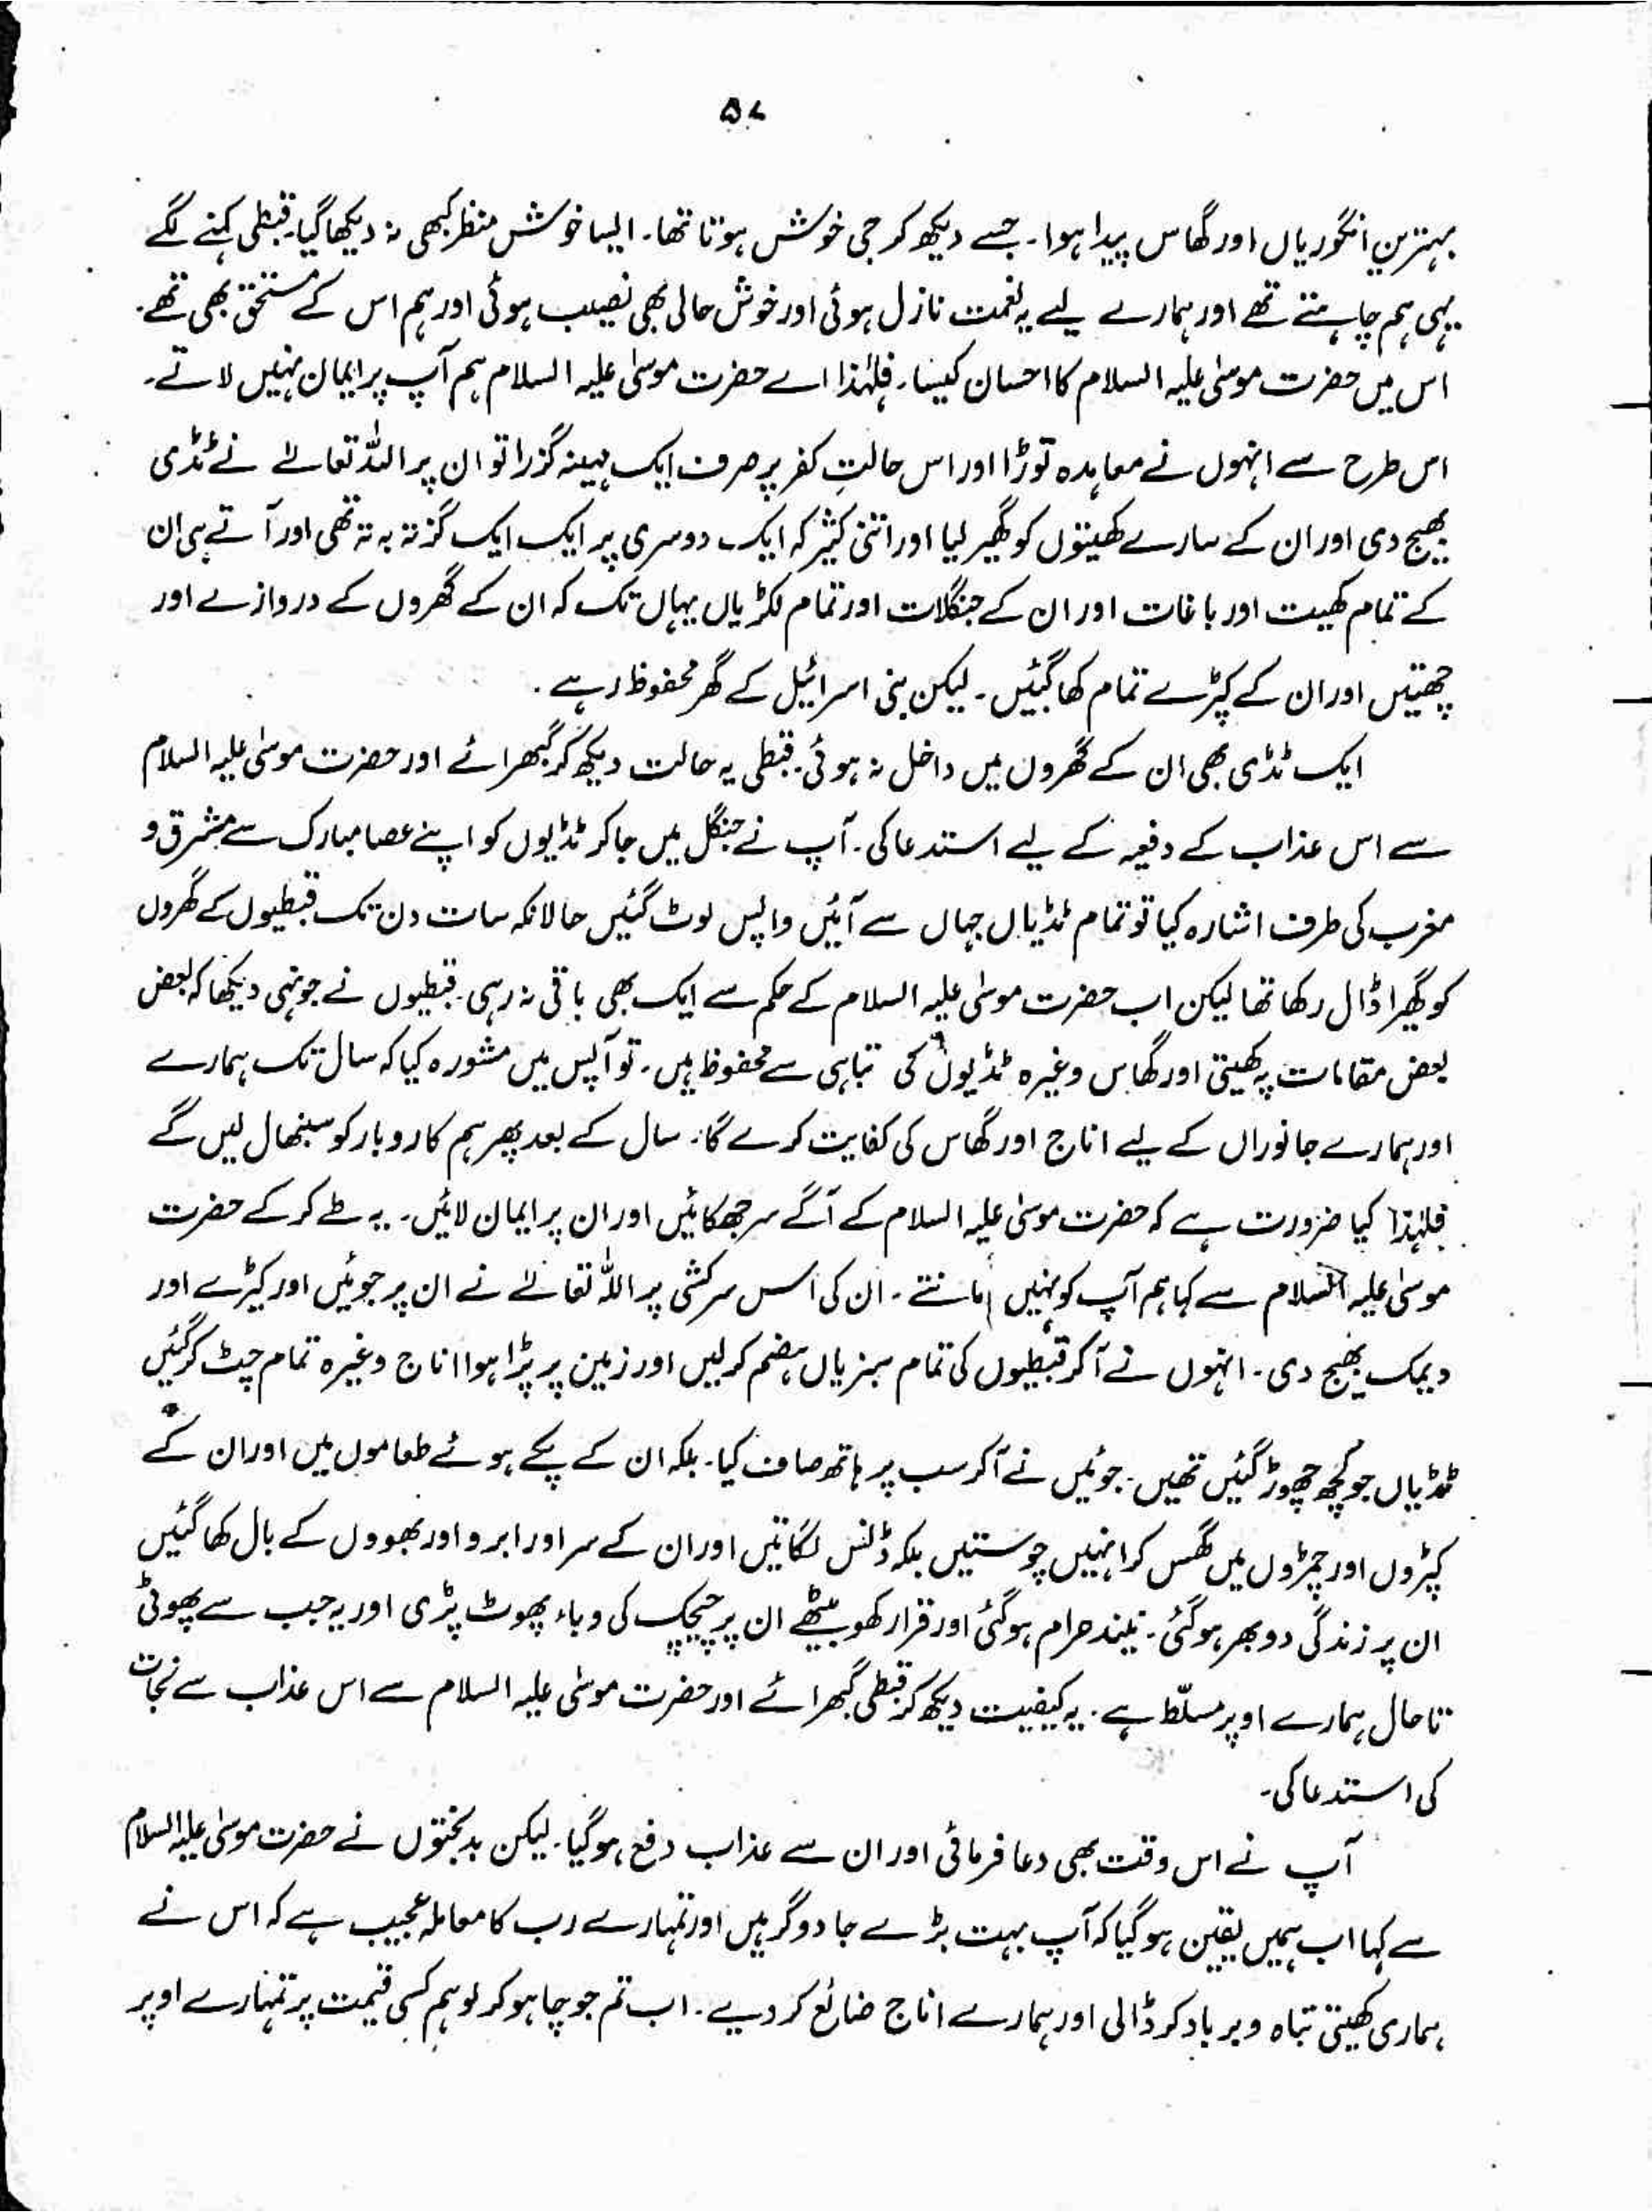 ۵۷
بہترین انگوریاں اور گھاس پیدا ہوا۔ جسے دیکھ کر جی خوش ہوتا تھا۔ ایسا خوش منظر کبھی نہ دیکھا گیا۔ قبطی کہنے لگے
یہی ہم چاہتے تھے اور ہمارے لیے یہ نعمت نازل ہوئی اور خوش حالی بھی نصیب ہوئی اور ہم اس کے مستحق بھی تھے۔
اس میں حضرت موسٰی علیہ السلام کا احسان کیسا۔ فلہٰذا اے حضرت موسٰی علیہ السلام ہم آپ پر ایمان نہیں لاتے۔
اس طرح سے انہوں نے معاہدہ توڑا اور اس حالتِ کفر پر صرف ایک مہینہ گزرا تو ان پر اللہ تعالےٰ نے ٹڈی
بھیج دی اور ان کے سارے کھیتوں کو گھیر لیا اور اتنی کثیر کہ ایک دوسری پر ایک ایک گز تہ بہ تہ تھی اور آتے ہی ان
کے تمام کھیت اور باغات اور ان کے جنگلات اور تمام لکڑیاں یہاں تک کہ ان کے گھروں کے دروازے اور
چھتیں اور ان کے کپڑے تمام کھا گئیں۔ لیکن بنی اسرائیل کے گھر محفوظ رہے۔
ایک ٹڈی بھی ان کے گھروں میں داخل نہ ہوئی۔ قبطی یہ حالت دیکھ کر گھبرائے اور حضرت موسٰی علیہ السلام
سے اس عذاب کے دفیعہ کے لیے استدعا کی۔ آپ نے جنگل میں جا کر ٹڈیوں کو اپنے عصا مبارک سے مشرق و
مغرب کی طرف اشارہ کیا تو تمام ٹڈیاں جہاں سے آئیں واپس لوٹ گئیں حالانکہ سات دن تک قبطیوں کے گھروں
کو گھیرا ڈال رکھا تھا لیکن اب حضرت موسٰی علیہ السلام کے حکم سے ایک بھی باقی نہ رہی۔ قبطیوں نے جونہی دیکھا کہ بعض
بعض مقامات پہ کھیتی اور گھاس وغیرہ ٹڈیوں کی تباہی سے محفوظ ہیں۔ تو آپس میں مشورہ کیا کہ سال تک ہمارے
اور ہمارے جانوراں کے لیے اناج اور گھاس کی کفایت کرے گا۔ سال کے بعد پھر ہم کاروبار کو سنبھال لیں گے
فلہٰذا کیا ضرورت ہے کہ حضرت موسٰی علیہ السلام کے آگے سر جھکائیں اور ان پر ایمان لائیں۔ یہ طے کر کے حضرت
موسٰی علیہ السلام سے کہا ہم آپ کو نہیں مانتے۔ ان کی اس سرکشی پر اللہ تعالےٰ نے ان پر جوئیں اور کیڑے اور
دیمک بھیج دی۔ انہوں نے آکر قبطیوں کی تمام سبزیاں ہضم کر لیں اور زمین پر پڑا ہوا اناج وغیرہ تمام چٹ کر گئیں
ٹڈیاں جو کچھ چھوڑ گئیں تھیں۔ جوئیں نے آکر سب پر ہاتھ صاف کیا۔ بلکہ ان کے پکے ہوئے طعاموں میں اور ان کے
کپڑوں اور چمڑوں میں گھس کر انہیں چوستیں بلکہ ڈنس لگاتیں اور ان کے سر اور ابرو اور بھووں کے بال کھا گئیں
ان پر زندگی دوبھر ہو گئی۔ نیند حرام ہو گئی اور قرار کھو بیٹھے ان پر چیچک کی وباء پھوٹ پڑی اور یہ جب سے پھوٹی
تاحال ہمارے اوپر مسلّط ہے۔ یہ کیفیت دیکھ کر قبطی گبھرائے اور حضرت موسٰی علیہ السلام سے اس عذاب سے نجات
کی استدعا کی۔
آپ نے اس وقت بھی دعا فرمائی اور ان سے عذاب دفع ہو گیا۔ لیکن بدبختوں نے حضرت موسٰی علیہ السلام
سے کہا اب ہمیں یقین ہو گیا کہ آپ بہت بڑے جادوگر ہیں اور تمہارے رب کا معاملہ عجیب ہے کہ اس نے
ہماری کھیتی تباہ و برباد کر ڈالی اور ہمارے اناج ضائع کر دیے۔ اب تم جو چاہو کر لو ہم کسی قیمت پر تمہارے اوپر